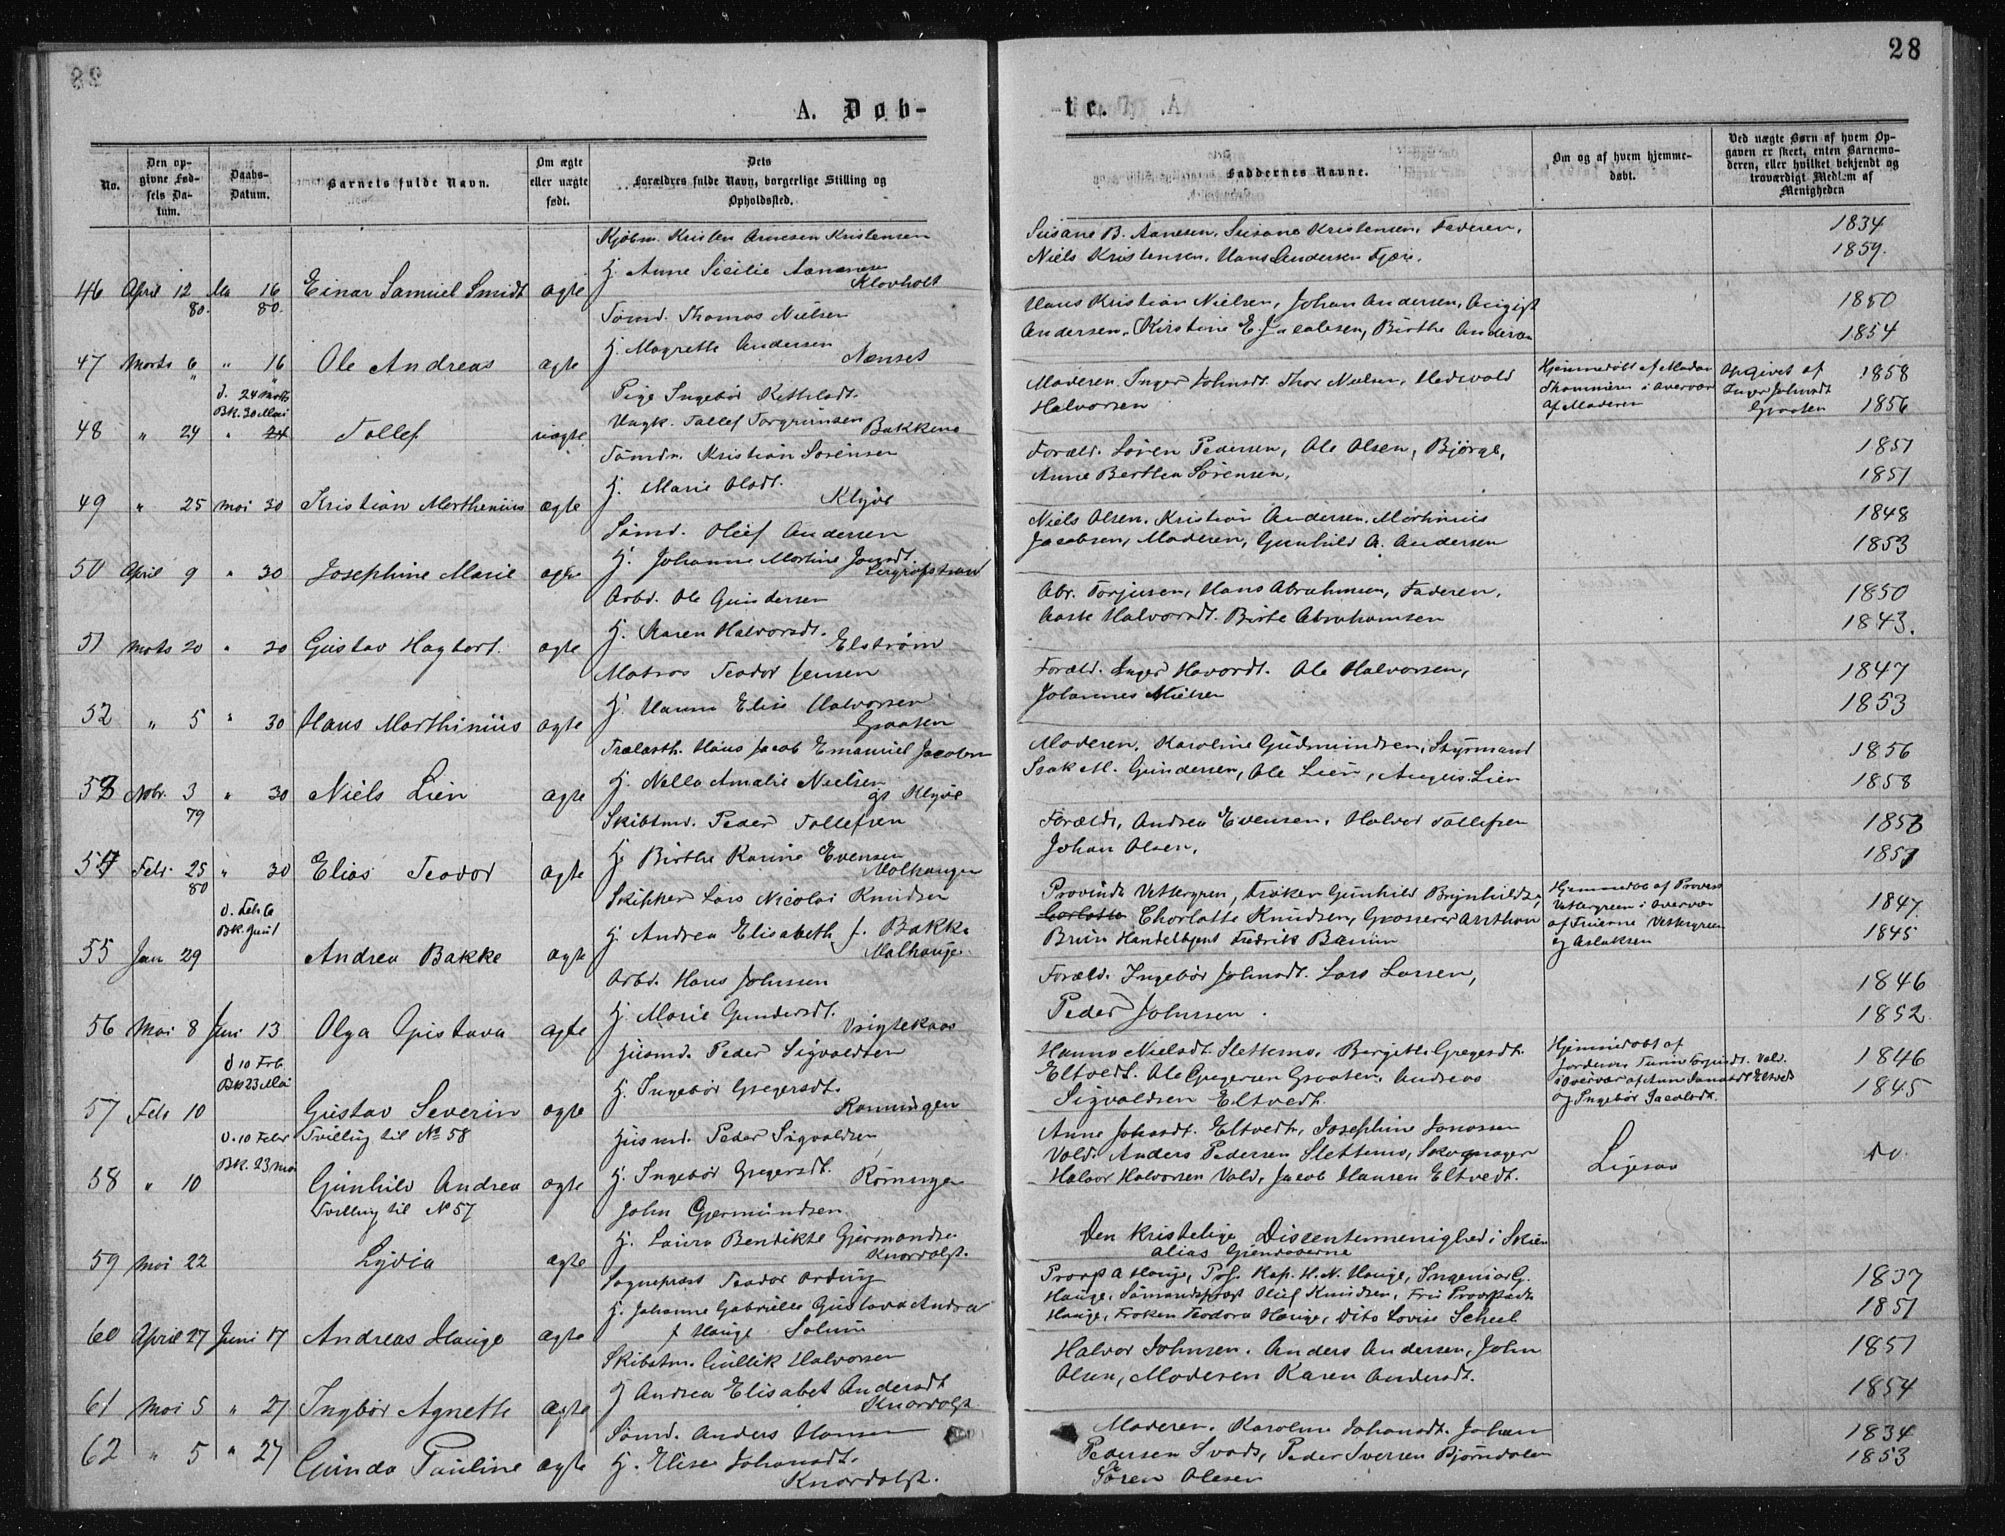 28
A. Døb-
te.
No.
Den op-
givne Fød-
sels Da-
tum.
Daabs-
Datum.
Barnets fulde Navn.
Om ægte
eller uægte
født.
Dets
Forældres fulde Navn, borgerlige Stilling og
Opholdssted.
Faddernes Navne.
Om og af hvem hjemme-
døbt.
Ved uægte Børn af hvem Op-
gaven er skeet, enten Barnemo-
deren, eller hvilket bekjendt og
troværdigt Medlem af
Menigheden
Kjøbm. Kristen Arnesen Kristensen
H. Anne Sicilie Aanonsen
Klovholt
46 April 12 Ma 16 Einar Samuel Smidt ægte
80. 80.
Susane B. Aanesen, Susane Kristensen, Faderen,
Niels Kristensen, Hans Andersen Fjære.
1834
1859.
Tømd. Thomas Nielsen
H. Magrethe Andersen
Nenset
47 Marts 6 " 16 Ole Andreas ægte
Hans Kristian Nielsen, Johan Andersen,
Andersen, Kirstine E. Jacobsen, Birthe Andersen
1850
1854
D. 24 Marts
BK. 30 Mai
Pige Ingebør Kittilsdt.
Ungk. Tollef Torgrimsen
Bakkene
48 " 24 " 24 Tollef uægte
Moderen, Inger Johnsdt. Thor Nielsen, Hedevald
Halvorsen
Hjemmedøbt af Madam
Thommesen i Overvær
af Moderen
Opgivet af
Inger Johnsdt
Graaten
1858
1856
Tømdr. Kristian Sørensen
H. Marie Olsdt.
Klyve
49 " 25 Mai 30 Kristian Marthenius ægte
Foræld. Søren Pedersen, Ole Olsen, Bjørge,
Anne Berthea Sørensen,
1851
1851
Sømd. Oluf Andersen
H. Johanne Martine
50 April 9 " 30 Josephine Marie ægte
Niels Olsen, Kristian Andersen, Marthinius
Jacobsen, Moderen, Gunhild A. Andersen
1848
1853
Arbd. Ole Gundersen
H. Karen Halvorsdt.
Elstrøm
51 Marts 20 " 30 Gustav Hagbart ægte
Abr. Torjusen, Hans Abrahmsen, Faderen,
Aaste Halvorsdt. Birte Abrahamsen
1850
1843.
Matros Teodor Jensen
H. Hanna Elise Halvorsen
Graaten
52 " 5 " 30 Hans Marthinius ægte
Foræld. Inger Havordt. Ole Halvorsen,
Johannes Nielsen
1847
1853
Trælasth. Hans Jacob Emanuel Jacobsen
H. Nella Amalie Nielsen
gs Klyve
53 Nobr. 3 " 30 Niels Lien ægte
79
Moderen, Karoline Gudmundsen, Styrmand
Isak M. Gundersen, Ole Lien, August Lien
1856
1858
Skibsmd. Peder Tollefsen
H. Birthe Karine Evensen
Malhaugen
54 Feb. 25 " 30 Elias Teodor ægte
80
Foræld, Andrea Evensen, Halvor Tollefsen
Johan Olsen,
1853
1857
D. Feb 6
BK. Juni 1
Skipper Lars Nicolai Knudsen
H. Andrea Elisabeth f. Bakke
Malhauge
55 Jan 29 Andrea Bakke ægte
Provinds Vettergren, Frøken Gunhild Brynhildsn,
Charlotte Knudsen, Grosserer Anthon
Bruun Handelbtjent Fredrik Baumn
Hjemmedøbt af Provinds
Vettergreen i Overvær
af Fruerne Vettergreen
og Aslaksen
1847.
1845
Arbd. Hans Johnsen
H. Marie Gundersdt.
56 Mai 8 Juni 13 Olga Gustava ægte
Foræld. Ingebør Johnsdt. Lars Larsen,
Peder Johnsen.
1846
1852
D 10 Feb
BK 23 Mai
Husmd. Peder Sigvaldsen
H. Ingebør Gregersdt.
Rønningen
57 Feb 10 Gustav Severin ægte
Tvilling til No 58
Hanna Nielsdt. Slettemo, Bergith Gregersdt.
Eltvedt. Ole Gregersen Graaten, Andreas
Sigvaldsen Eltvedt.
Hjemmedøbt af
Jordemr. Vold.
i Overvær af Anne Eltvedt
og Ingebør Jacobsdt.
1846
1845
D. 10 Febr
BK. 23 Mai
Husmd. Peder Sigvaldsen
H. Ingebør Gregersdt.
Rønningen
58 " 10 Gunhild Andrea ægte
Tvilling til No 57
Anne Johnsdt. Eltvedt, Josephine Jonassen
Vold. Anders Pedersen Slettemo, Skomager
Halvor Halvorsen Vold, Jacob Hansen Eltvedt.
Ligesaa
Do.
John Gjermundsen
H. Laura Bendikte Gjermundsen
Knardalst.
59 Mai 22 Lydia ægte
Den kristelige Dissentermenighed i Skien
alias Gjendøberne
Sognepræst Teodor Arding
H. Johanne Gabrielle Gustava Andrea
f Hauge Solum
60 April 27 Juni 17 Andreas Hauge ægte
Provst A Hauge, Pers. Kap. H. N. Hauge, Ingeniør G.
Hauge, Sømandspræst Oluf Knudsen, Fru Provstinde
Hauge, Frøken Teodora Hauge, Dito Lovise Scheel
1837
1851
Skibstm. Gullik Halvorsen
H Andrea Elisabet Andersdt
Knardalst
61 Mai 5 " 27 Ingbør Agnethe ægte
Halvor Johnsen, Anders Andersen, John
Olsen, Moderen Karen Andersdt.
1851
1854
Sømd. Anders Hansen
H. Elise Johansdt.
Knardalst.
62 " 5 " 27 Gunda Pauline ægte
Moderen, Karoline Johansdt. Johan
Pedersen Svads, Peder Iversen Bjørndalen
Søren Olesen
1834
1853